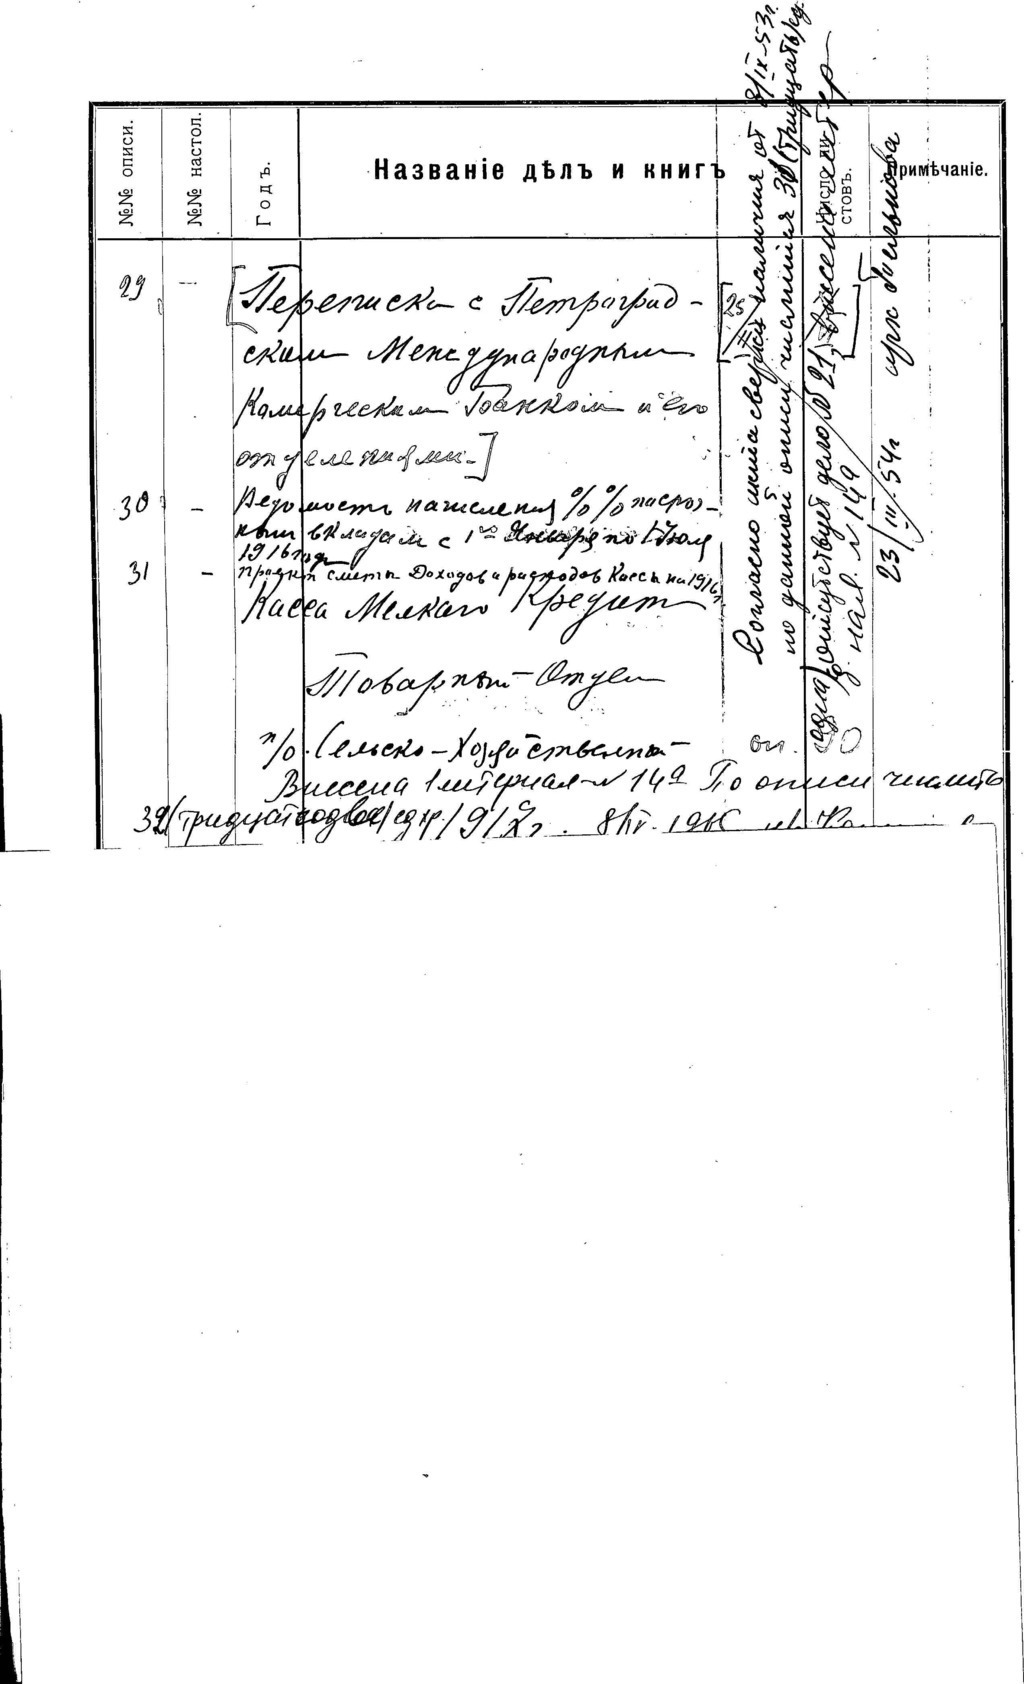 №№ описи.
№№ настол.
Годъ.
Названіе дѣлъ и книгъ
Число ли-
стовъ.
Примѣчаніе.
29 — [Переписка с Петроград-
ским Международным
Комерческим Банком и его
отделениями.]
30 — Ведомость начисления %% по сроч-
ным вкладам с 1го Января по 1 Июля
1916 года
31 — Проэкт сметы Доходов и расходов Кассы на 1916 г.
Касса Мелкаго Кредита
Товарный Отдел
п/о Сельско-Хозяйственный
оп.
Внесена 1 литерная № 14а По описи числится
32 (тридцать две) ед.
Согласно акта сверки наличия от 8/IX-53 г.
по данной описи числится 30 (тридцать) ед.
отсутствует дело № 21,
23/III-54 г.